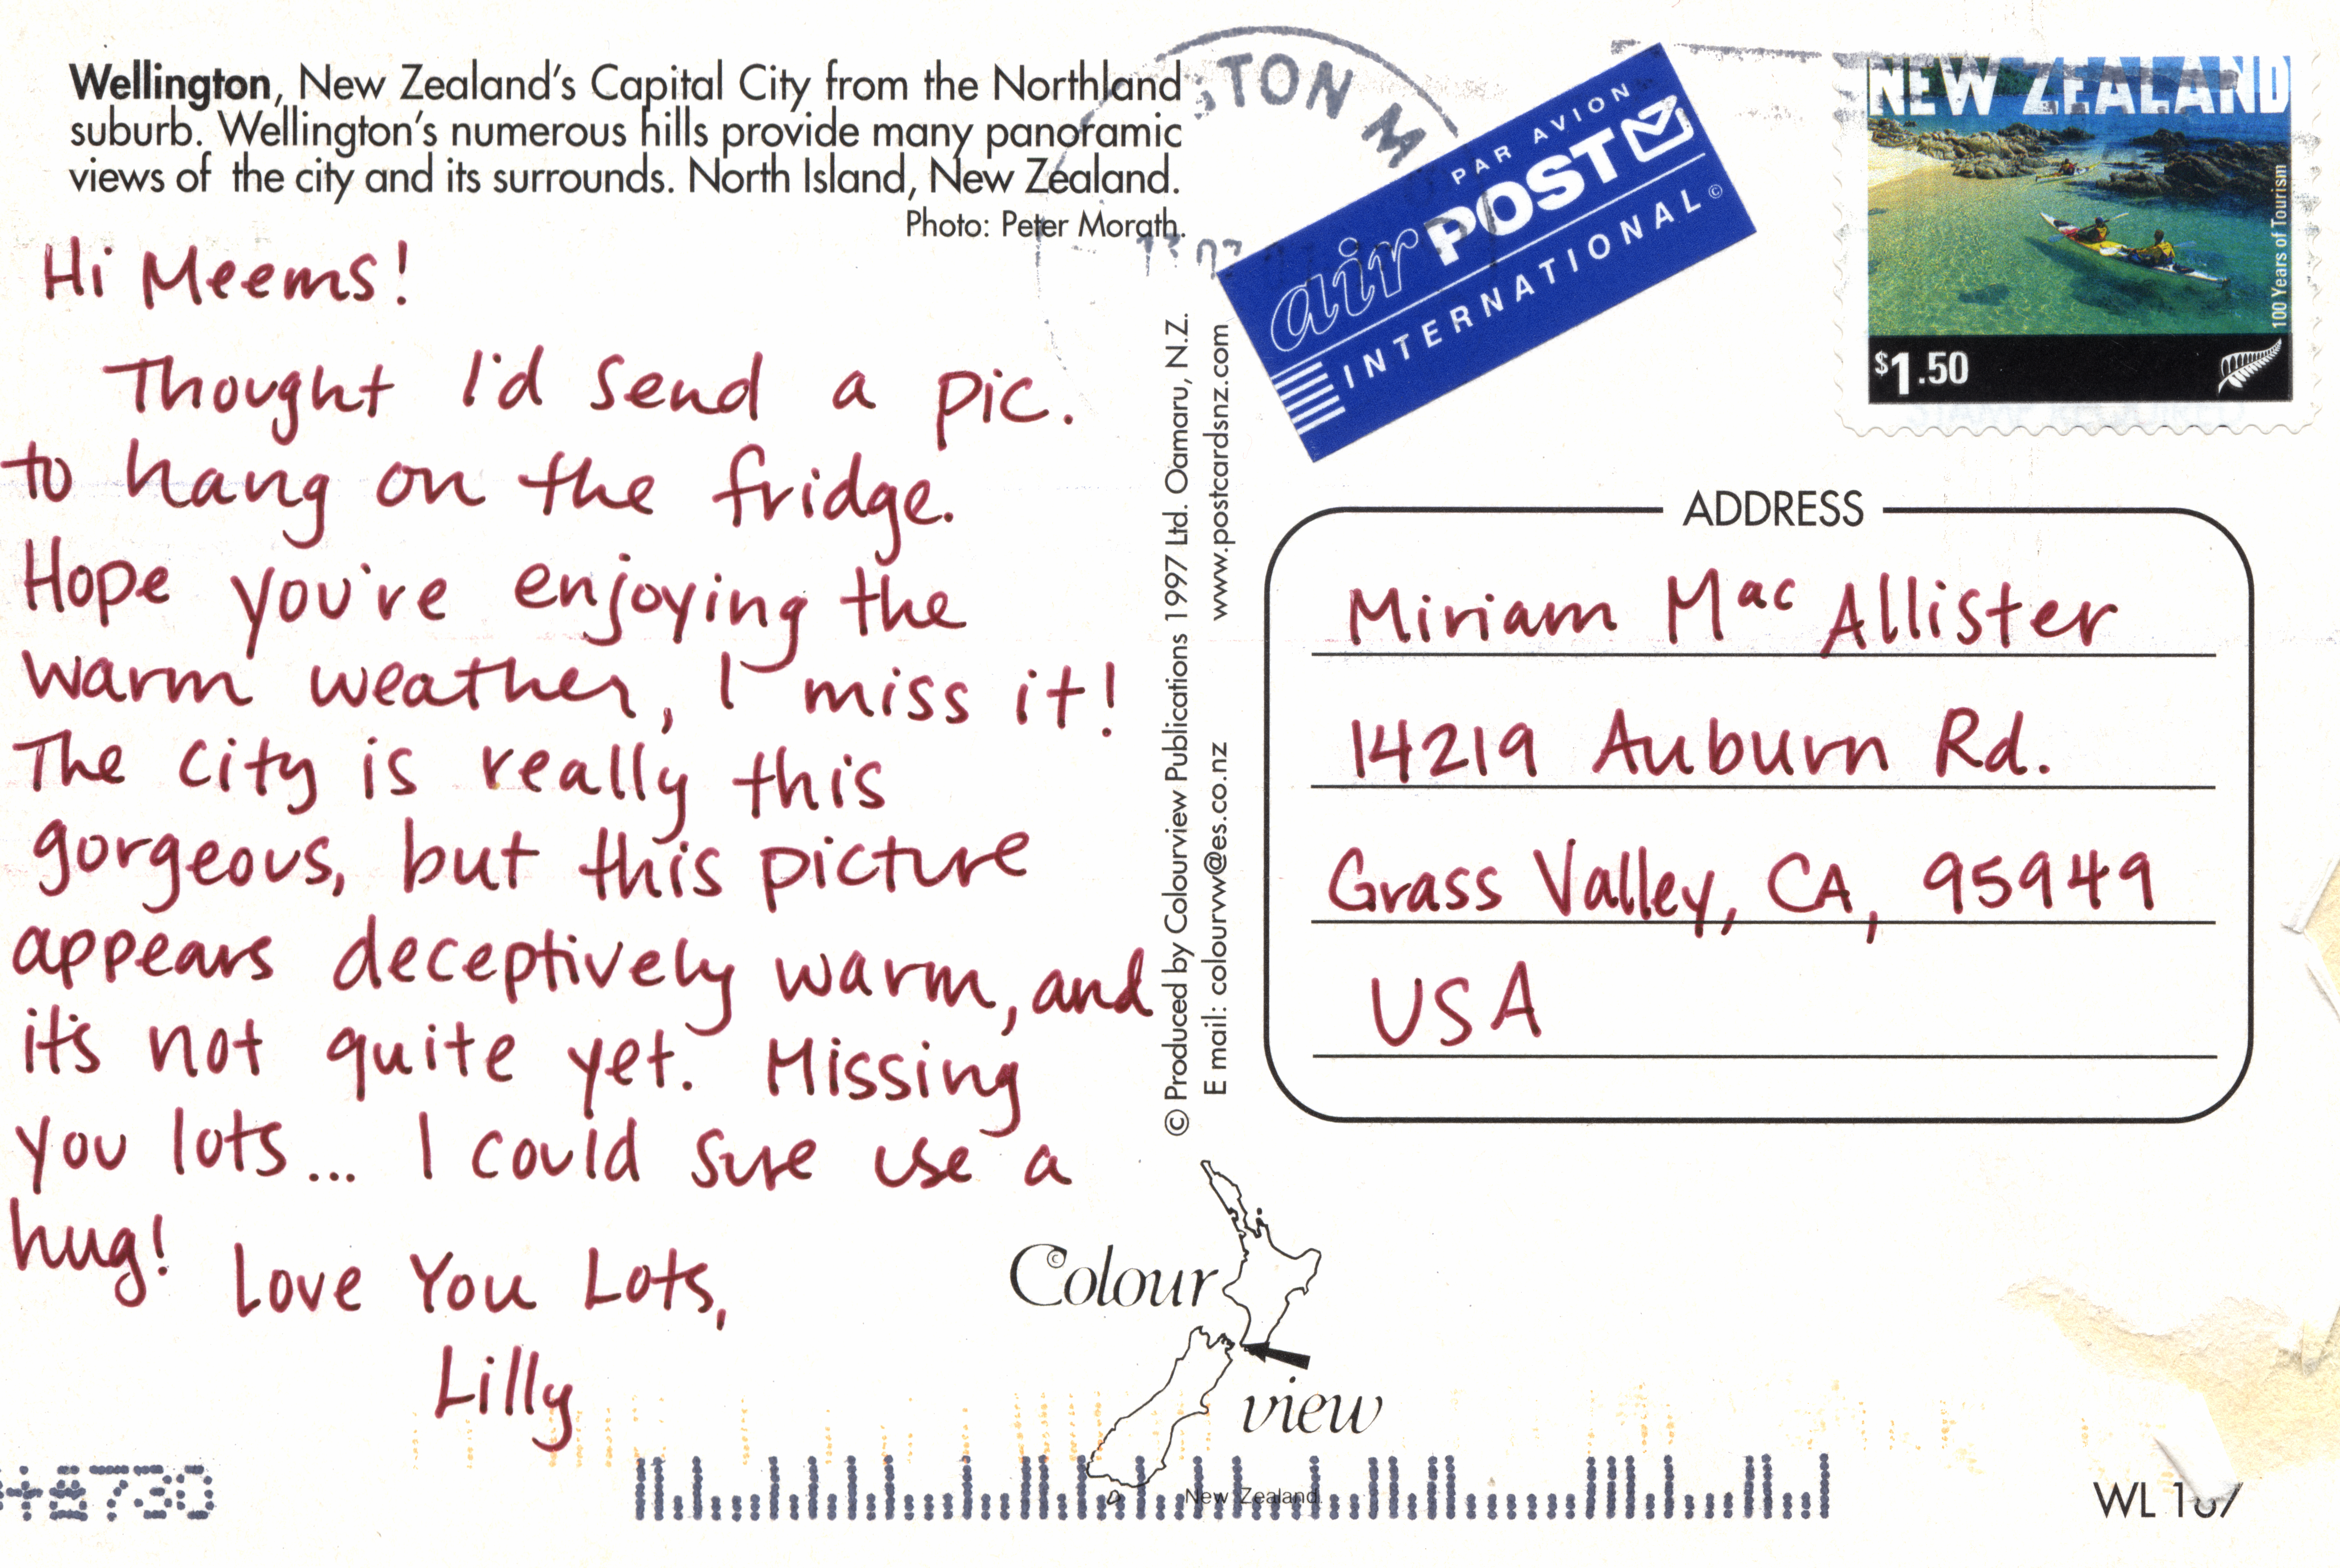 Wellington, New Zealand's Capital City from the Northland
suburb. Wellington's numerous hills provide many panoramic
views of the city and its surrounds. North Island, New Zealand.
Photo: Peter Morath.
Hi Meems!
Thought I'd send a pic.
to hang on the fridge.
Hope you're enjoying the
warm weather, I miss it!
The city is really this
gorgeous, but this picture
appears deceptively warm, and
it's not quite yet. Missing
you lots... I could sure use a
hug!
Love You Lots,
Lilly
© Produced by Colourview Publications 1997 Ltd. Oamaru, N.Z.
E mail: colourvw@es.co.nz www.postcardsnz.com
PAR AVION
air POST
INTERNATIONAL©
NEW ZEALAND
100 Years of Tourism
$1.50
ADDRESS
Miriam MacAllister
14219 Auburn Rd.
Grass Valley, CA, 95949
USA
©Colour
view
New Zealand
WL